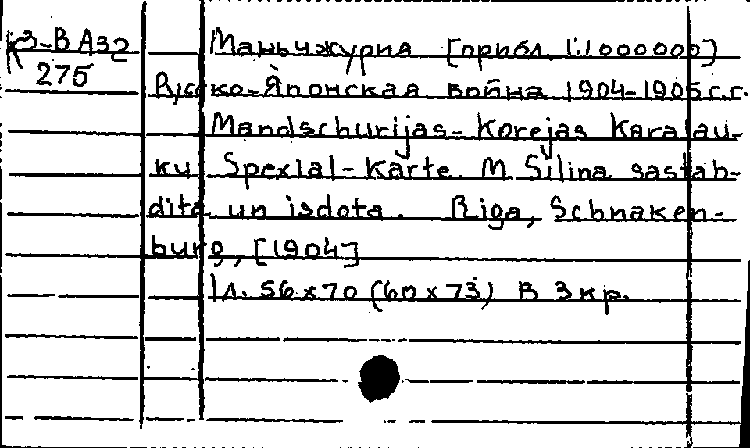 К3-В А32
275
Маньчжурия [прибл. 1:1000000]
Русско-Японская война 1904-1905 г.г.
Mandschurijas-Korejas Karalau-
ku Spezial-Karte. M. Siliņa sastah-
dita un isdota. Riga, Schnaken-
burg, [1904]
1 л. 56x70 (60x73) в 3 кр.